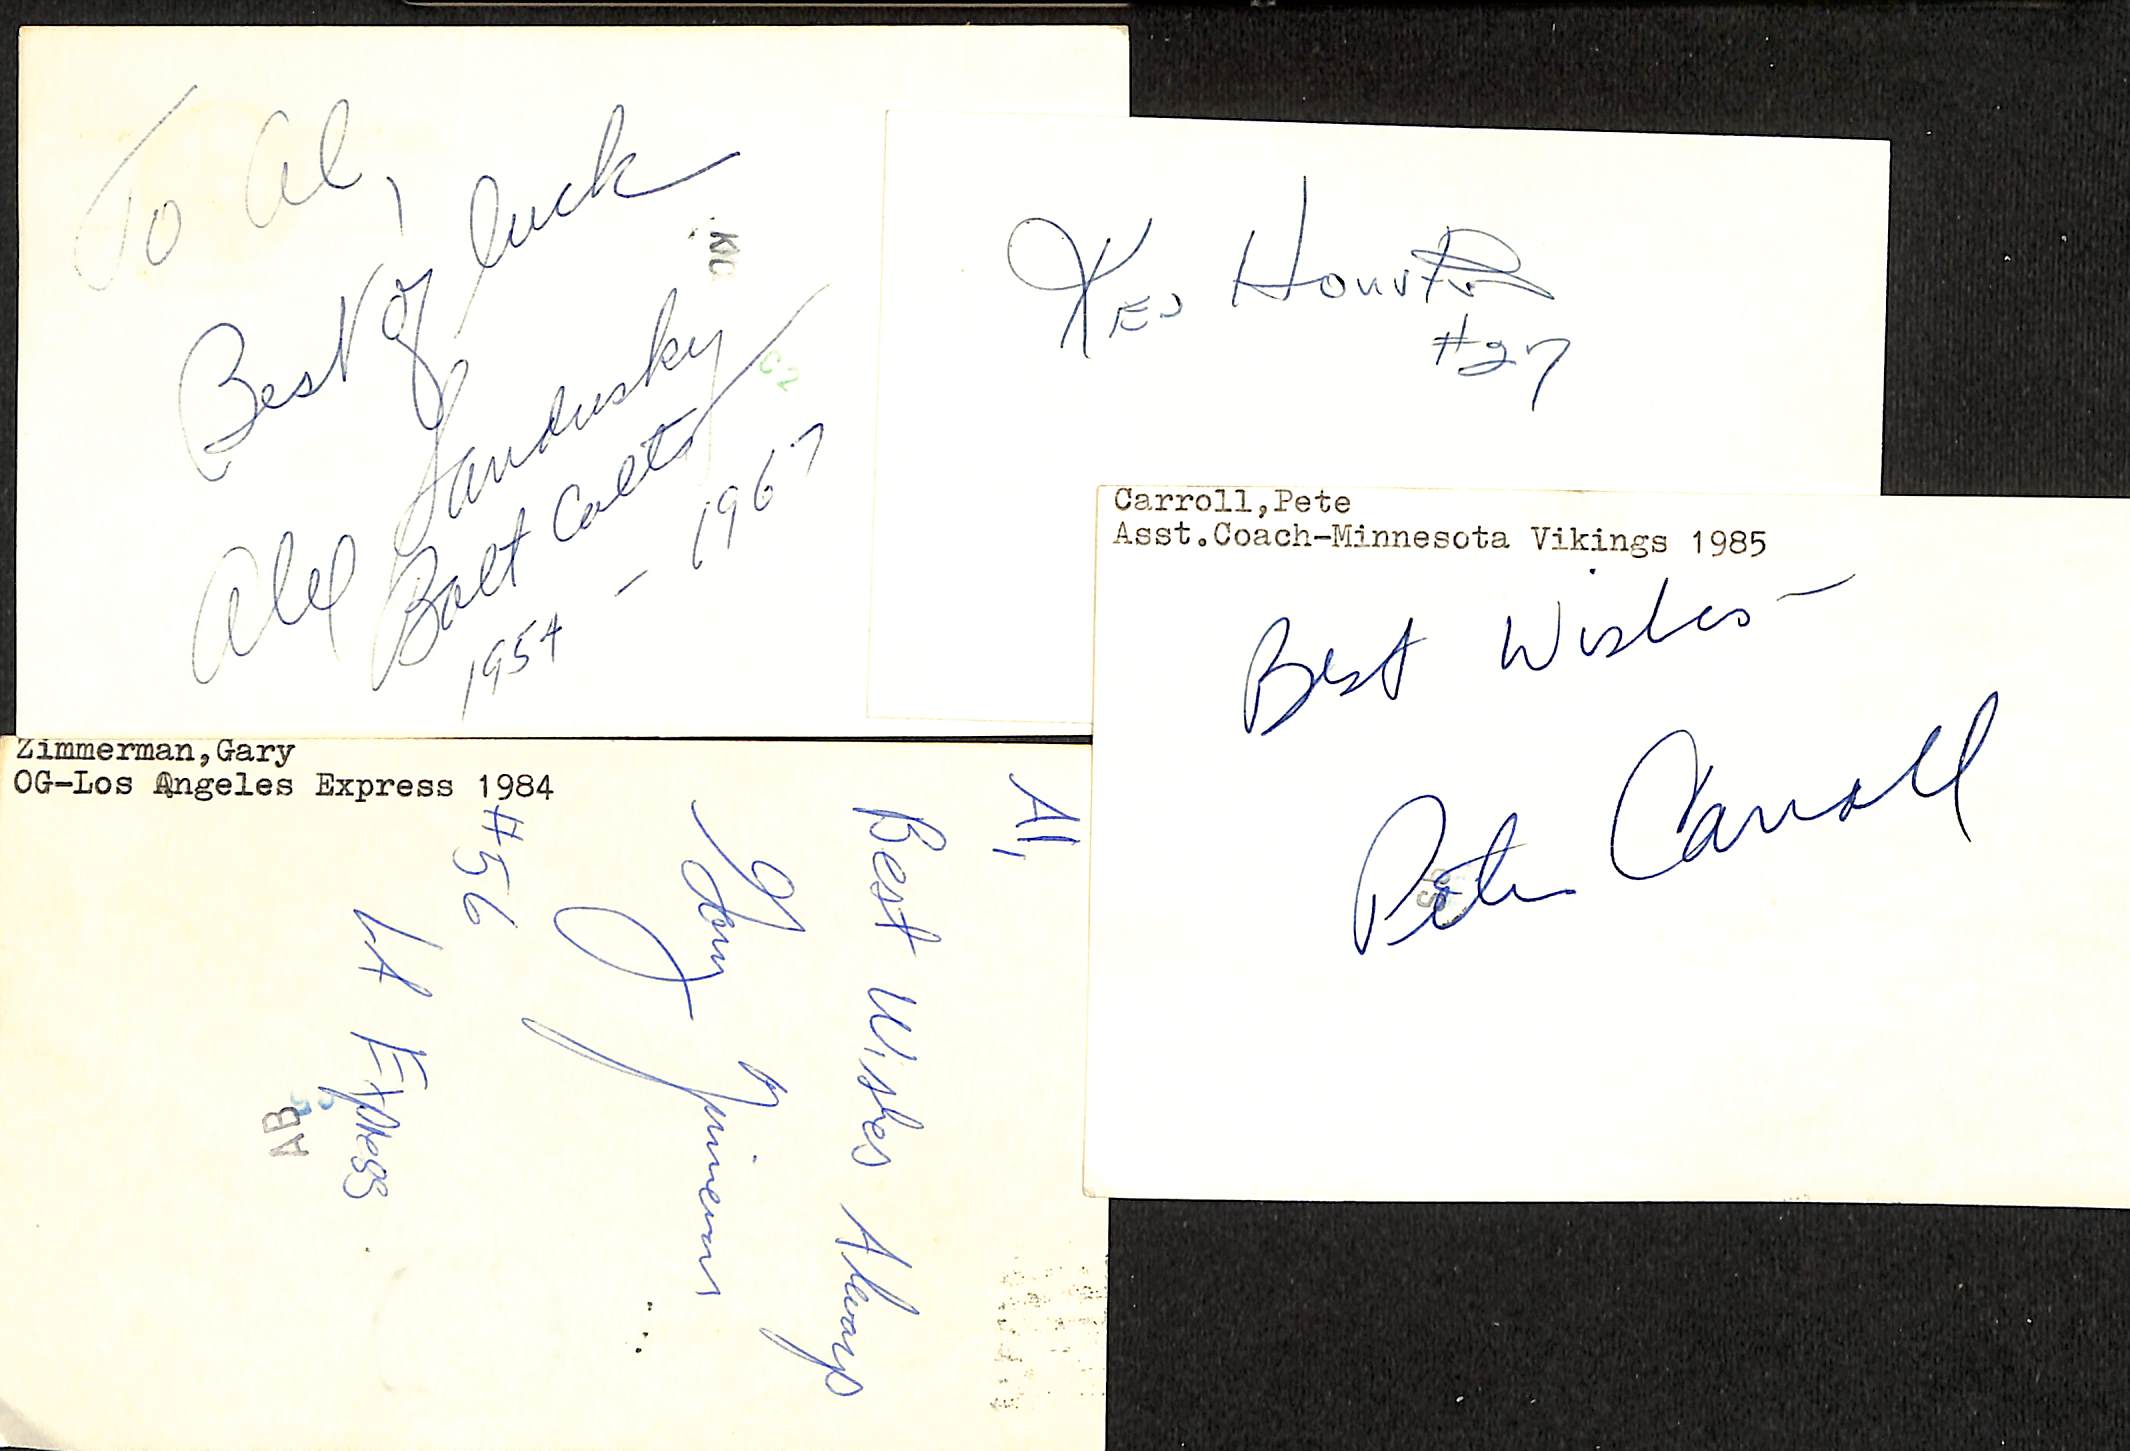 To Al,
Best of luck
Alex Sandusky
Balt Colts
1954 - 1967
KC
C2
Ken Houston
#27
Carroll,Pete
Asst.Coach-Minnesota Vikings 1985
Best Wishes -
Pete Carroll
Zimmerman,Gary
OG-Los Angeles Express 1984
Al,
Best Wishes Always
Gary Zimmerman
#56
LA Express
AB